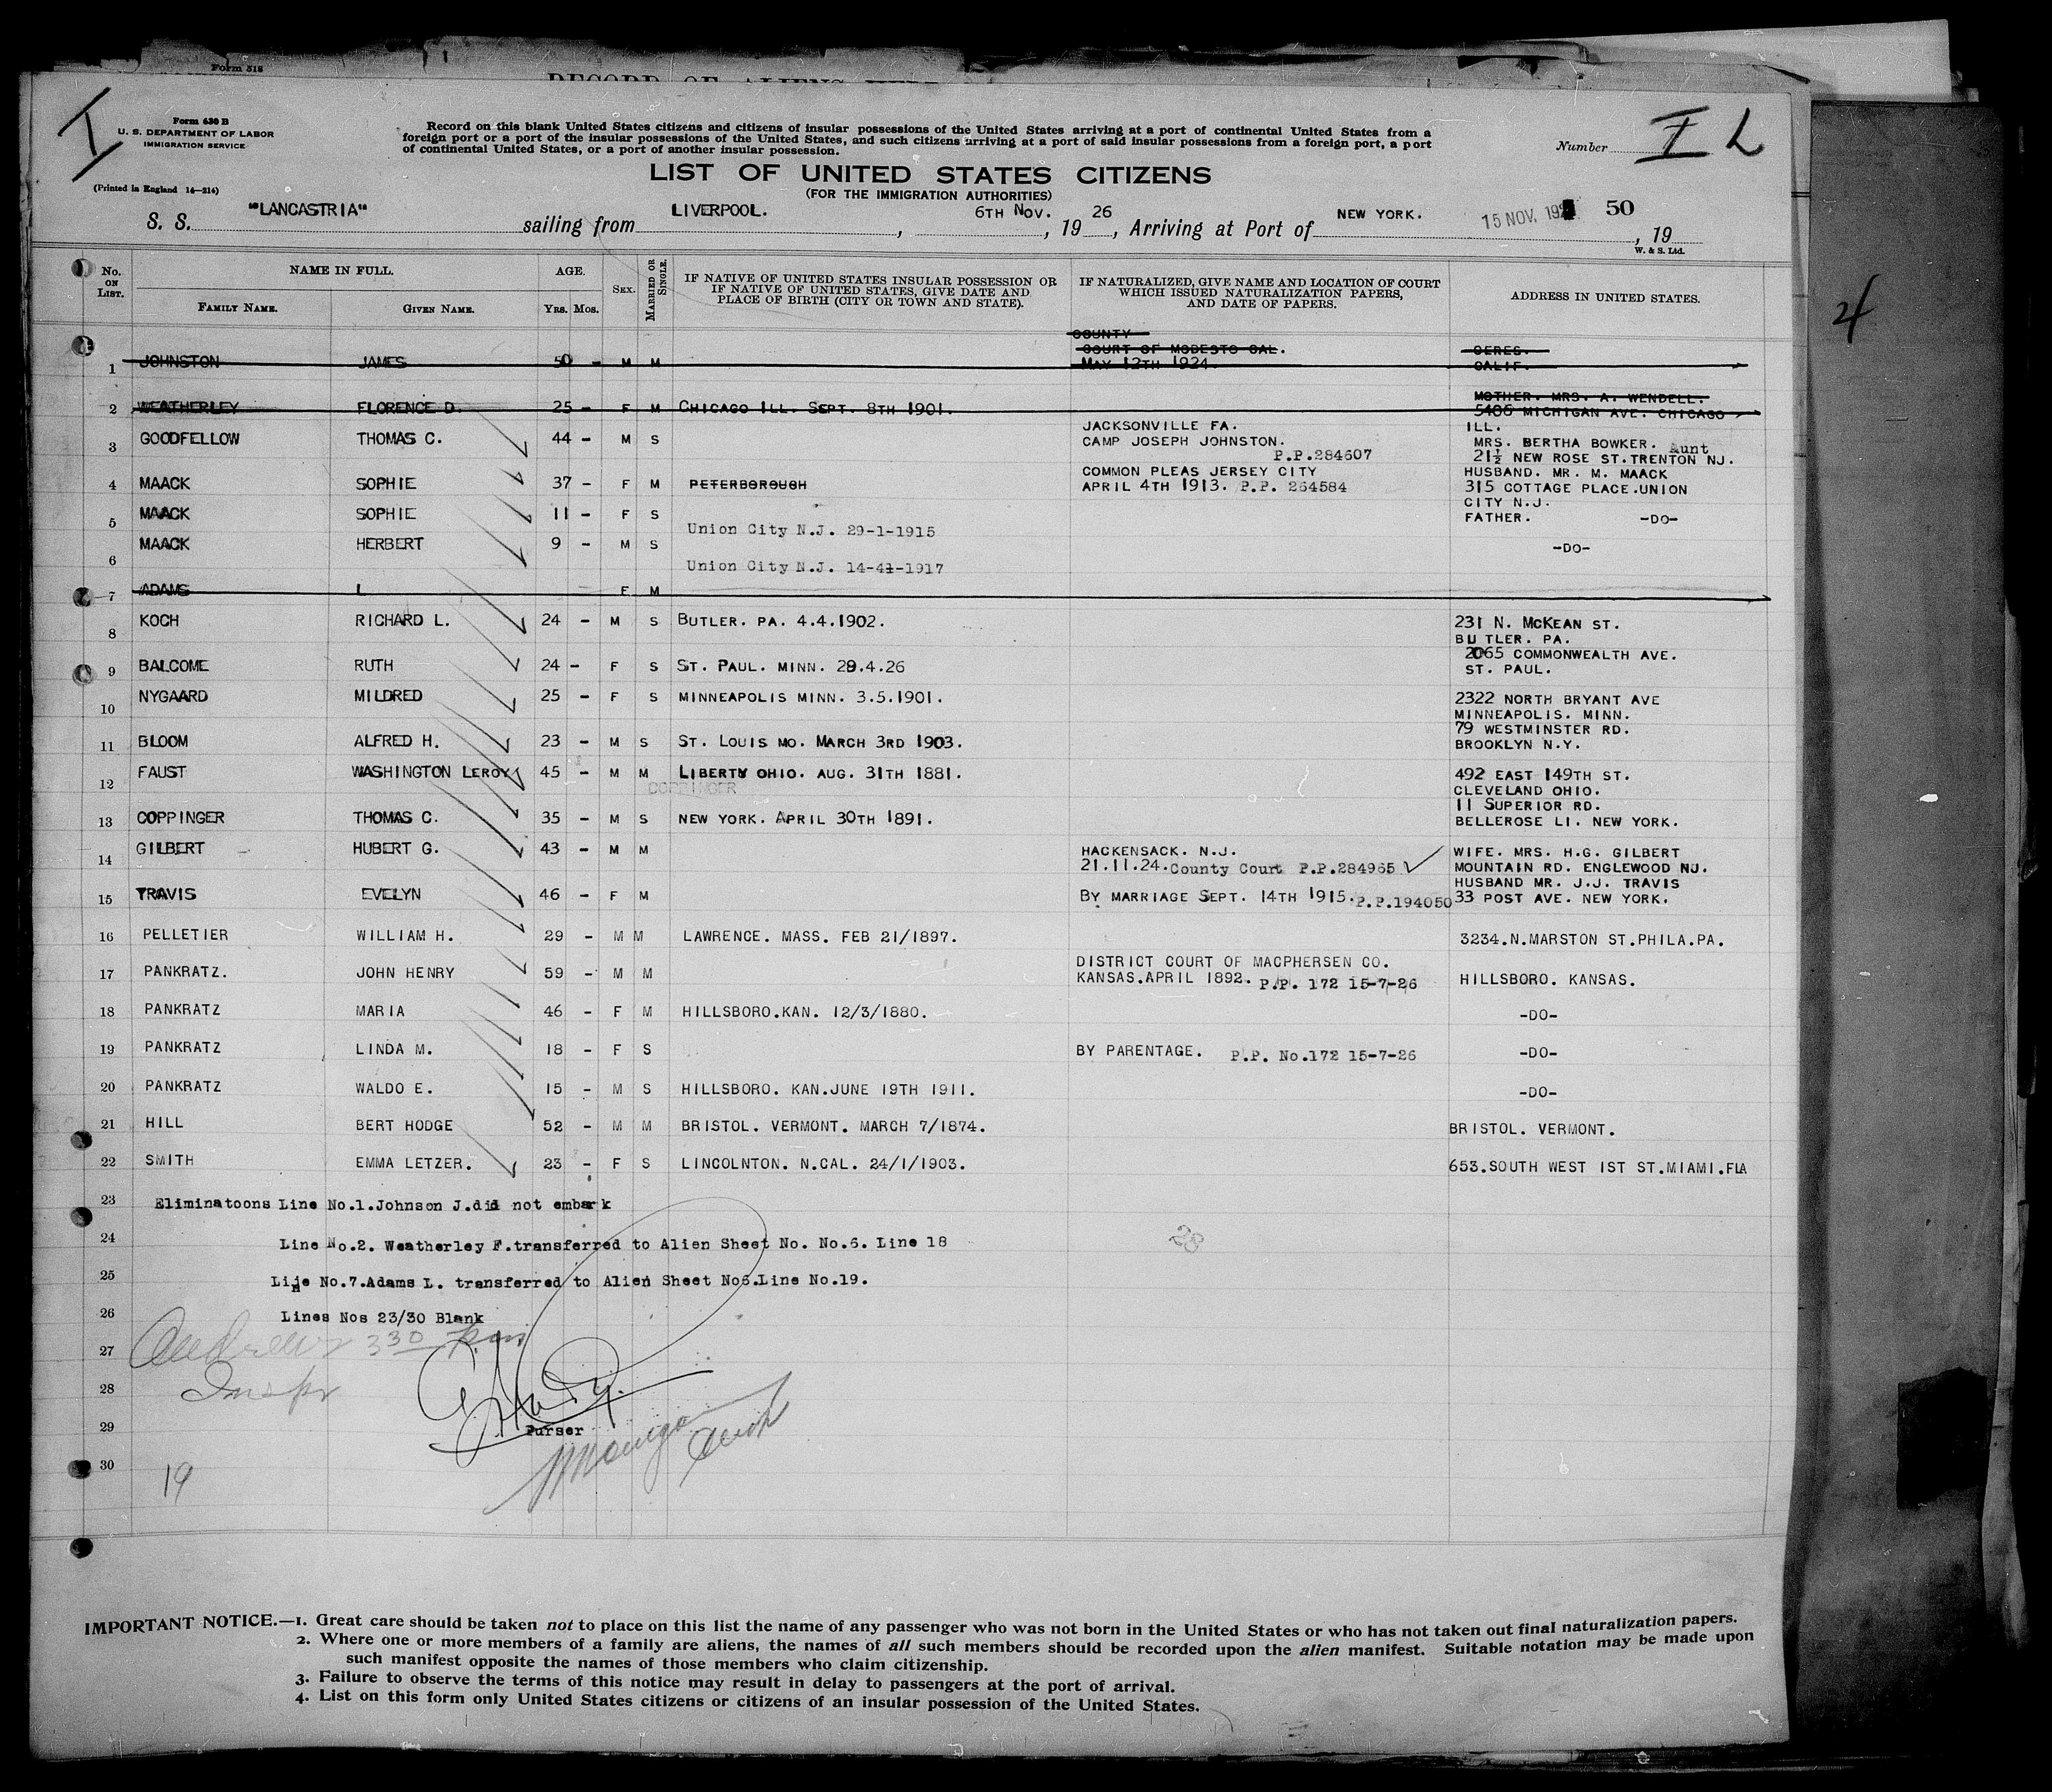 Form 518
RECORD OF ALIENS HELD
I
Form 630 B
U. S. DEPARTMENT OF LABOR
IMMIGRATION SERVICE
(Printed in England 14—214)
Record on this blank United States citizens and citizens of insular possessions of the United States arriving at a port of continental United States from a
foreign port or a port of the insular possessions of the United States, and such citizens arriving at a port of said insular possessions from a foreign port, a port
of continental United States, or a port of another insular possession.
Number I L
LIST OF UNITED STATES CITIZENS
(FOR THE IMMIGRATION AUTHORITIES)
S. S. "LANCASTRIA" sailing from LIVERPOOL. , 6TH Nov. , 19 26 , Arriving at Port of NEW YORK. 15 NOV. 192 50 , 19
W. & S. Ltd.
No. ON LIST. NAME IN FULL. AGE. SEX. MARRIED OR SINGLE. IF NATIVE OF UNITED STATES INSULAR POSSESSION OR IF NATIVE OF UNITED STATES, GIVE DATE AND PLACE OF BIRTH (CITY OR TOWN AND STATE). IF NATURALIZED, GIVE NAME AND LOCATION OF COURT WHICH ISSUED NATURALIZATION PAPERS, AND DATE OF PAPERS. ADDRESS IN UNITED STATES.
FAMILY NAME. GIVEN NAME. YRS. MOS.
COUNTY
COURT OF MODESTO CAL. CERES.
1 JOHNSTON JAMES 50 - M M MAY 12TH 1924. CALIF.
MOTHER. MRS. A. WENDELL.
2 WEATHERLEY FLORENCE D. 25 - F M CHICAGO ILL. SEPT. 8TH 1901. 5406 MICHIGAN AVE. CHICAGO
JACKSONVILLE FA. ILL.
3 GOODFELLOW THOMAS C. 44 - M S CAMP JOSEPH JOHNSTON. MRS. BERTHA BOWKER. Aunt
P.P.284607 21½ NEW ROSE ST.TRENTON NJ.
COMMON PLEAS JERSEY CITY HUSBAND. MR. M. MAACK
4 MAACK SOPHIE 37 - F M PETERBOROUGH APRIL 4TH 1913. P.P. 264584 315 COTTAGE PLACE.UNION
CITY N.J.
5 MAACK SOPHIE 11 - F S Union City N.J. 29-1-1915 FATHER. -DO-
6 MAACK HERBERT 9 - M S Union City N.J. 14-41-1917 -DO-
7 ADAMS L F M
8 KOCH RICHARD L. 24 - M S BUTLER. PA. 4.4.1902. 231 N. MCKEAN ST.
BUTLER. PA.
9 BALCOME RUTH 24 - F S ST. PAUL. MINN. 29.4.26 2065 COMMONWEALTH AVE.
ST. PAUL.
10 NYGAARD MILDRED 25 - F S MINNEAPOLIS MINN. 3.5.1901. 2322 NORTH BRYANT AVE
MINNEAPOLIS. MINN.
11 BLOOM ALFRED H. 23 - M S ST. LOUIS MO. MARCH 3RD 1903. 79 WESTMINSTER RD.
BROOKLYN N.Y.
12 FAUST WASHINGTON LEROY 45 - M M LIBERTY OHIO. AUG. 31TH 1881. 492 EAST 149TH ST.
COPPINGER CLEVELAND OHIO.
13 COPPINGER THOMAS C. 35 - M S NEW YORK. APRIL 30TH 1891. 11 SUPERIOR RD.
BELLEROSE LI. NEW YORK.
14 GILBERT HUBERT G. 43 - M M HACKENSACK. N.J. WIFE. MRS. H.G. GILBERT
21.11.24.County Court P.P.284965 MOUNTAIN RD. ENGLEWOOD NJ.
HUSBAND MR. J.J. TRAVIS
15 TRAVIS EVELYN 46 - F M BY MARRIAGE SEPT. 14TH 1915.P.P.194050 33 POST AVE. NEW YORK.
16 PELLETIER WILLIAM H. 29 - M M LAWRENCE. MASS. FEB 21/1897. 3234.N.MARSTON ST.PHILA.PA.
DISTRICT COURT OF MACPHERSEN CO.
17 PANKRATZ. JOHN HENRY 59 - M M KANSAS.APRIL 1892. P.P. 172 15-7-26 HILLSBORO. KANSAS.
18 PANKRATZ MARIA 46 - F M HILLSBORO.KAN. 12/3/1880. -DO-
19 PANKRATZ LINDA M. 18 - F S BY PARENTAGE. P.P. No.172 15-7-26 -DO-
20 PANKRATZ WALDO E. 15 - M S HILLSBORO. KAN.JUNE 19TH 1911. -DO-
21 HILL BERT HODGE 52 - M M BRISTOL. VERMONT. MARCH 7/1874. BRISTOL. VERMONT.
22 SMITH EMMA LETZER. 23 - F S LINCOLNTON. N.CAL. 24/1/1903. 653.SOUTH WEST 1ST ST.MIAMI.FLA
23 Eliminatoons Line No.1.Johnson J.did not embark
24 Line No.2. Weatherley F.transferred to Alien Sheet No. No.6. Line 18
28
25 Line No.7.Adams L. transferred to Alien Sheet No6.Line No.19.
26 Lines Nos 23/30 Blank
27 Andrews 330 pm
28 Inspr
29 Purser
30
19
4
IMPORTANT NOTICE.—1. Great care should be taken not to place on this list the name of any passenger who was not born in the United States or who has not taken out final naturalization papers.
2. Where one or more members of a family are aliens, the names of all such members should be recorded upon the alien manifest. Suitable notation may be made upon
such manifest opposite the names of those members who claim citizenship.
3. Failure to observe the terms of this notice may result in delay to passengers at the port of arrival.
4. List on this form only United States citizens or citizens of an insular possession of the United States.